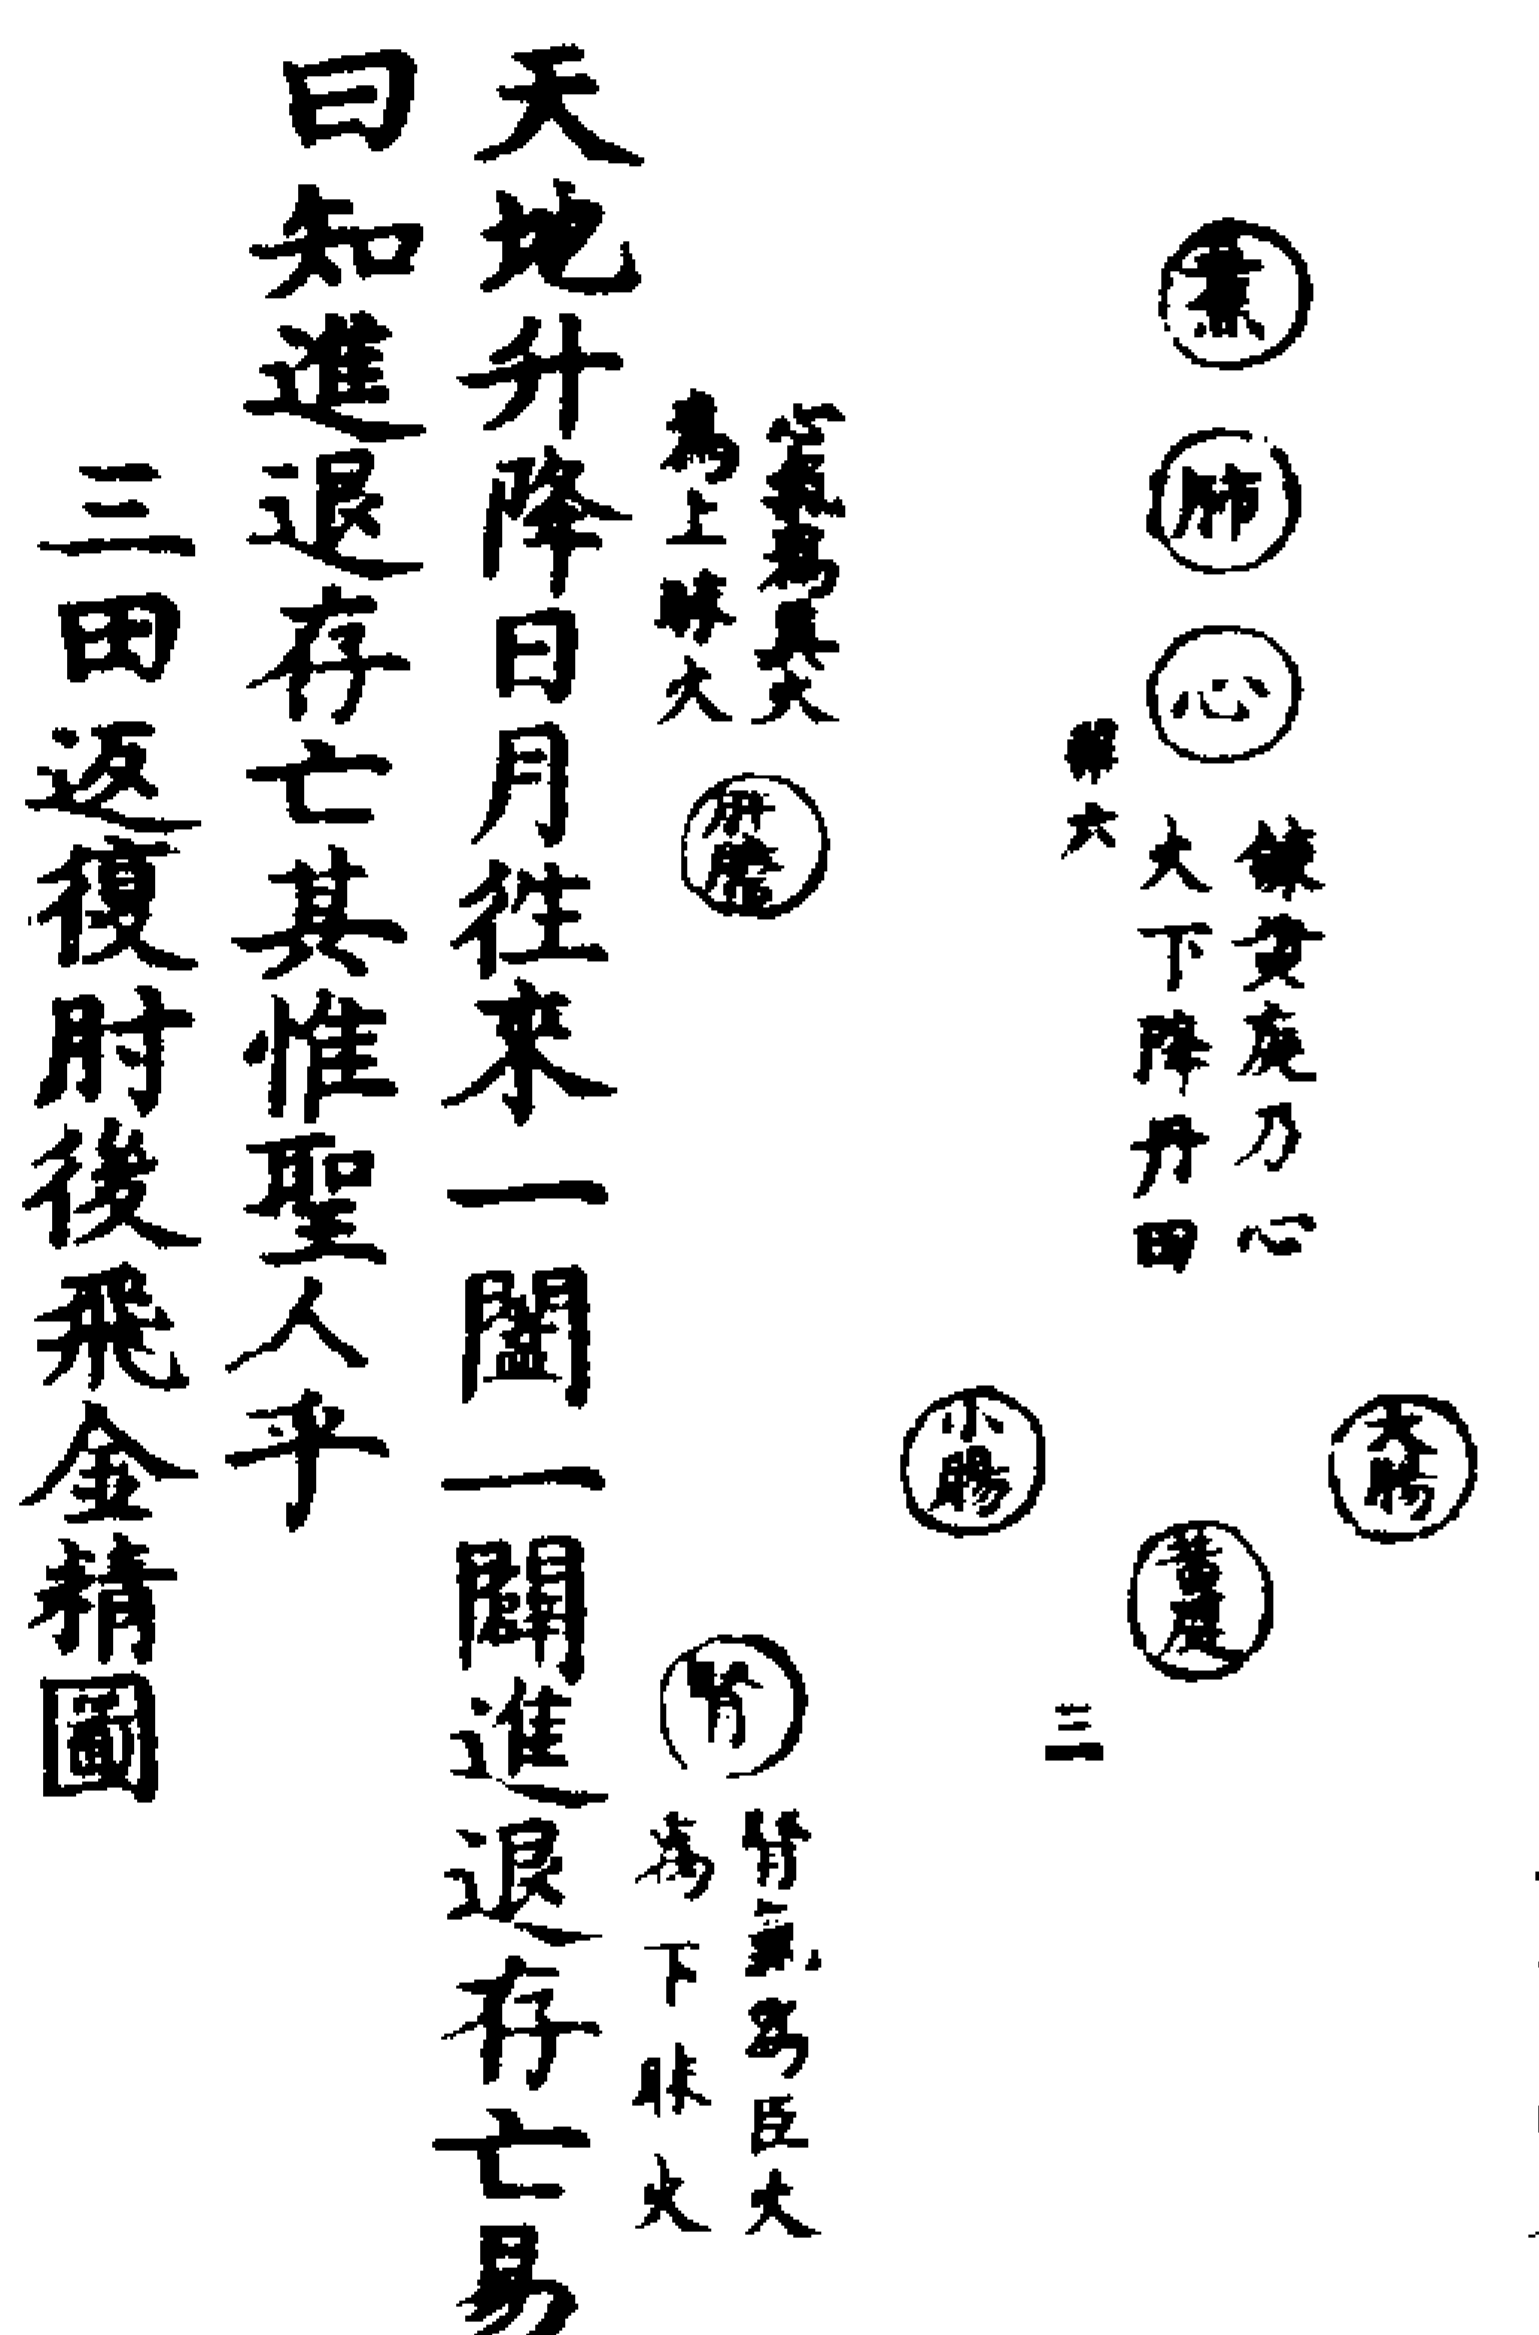 大腸
肺
心
黃庭乃心
大下降丹田
黃庭
三
小腸
心氣為君火
為上昧火
肝膽
腎
腎氣為臣火
為下昧火
天地升降日月往來一闔一闢進退存亡易
曰知進退存亡其惟聖人乎
三田返復肘後飛金精圖